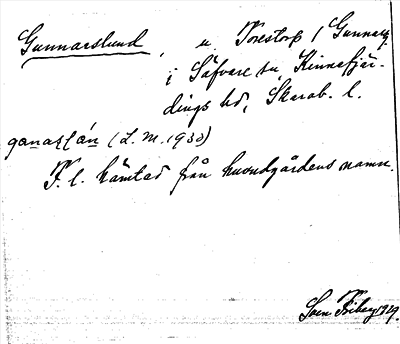 Gunnarslund, u. Torestorp / Gunnarsg.
i Säfvare sn, Kinnefjär-
dings hd, Skarab. l.
ganaslán (L. M. 1930)
F. l. hämtad från huvudgårdens namn.
Sven Friberg 1929.